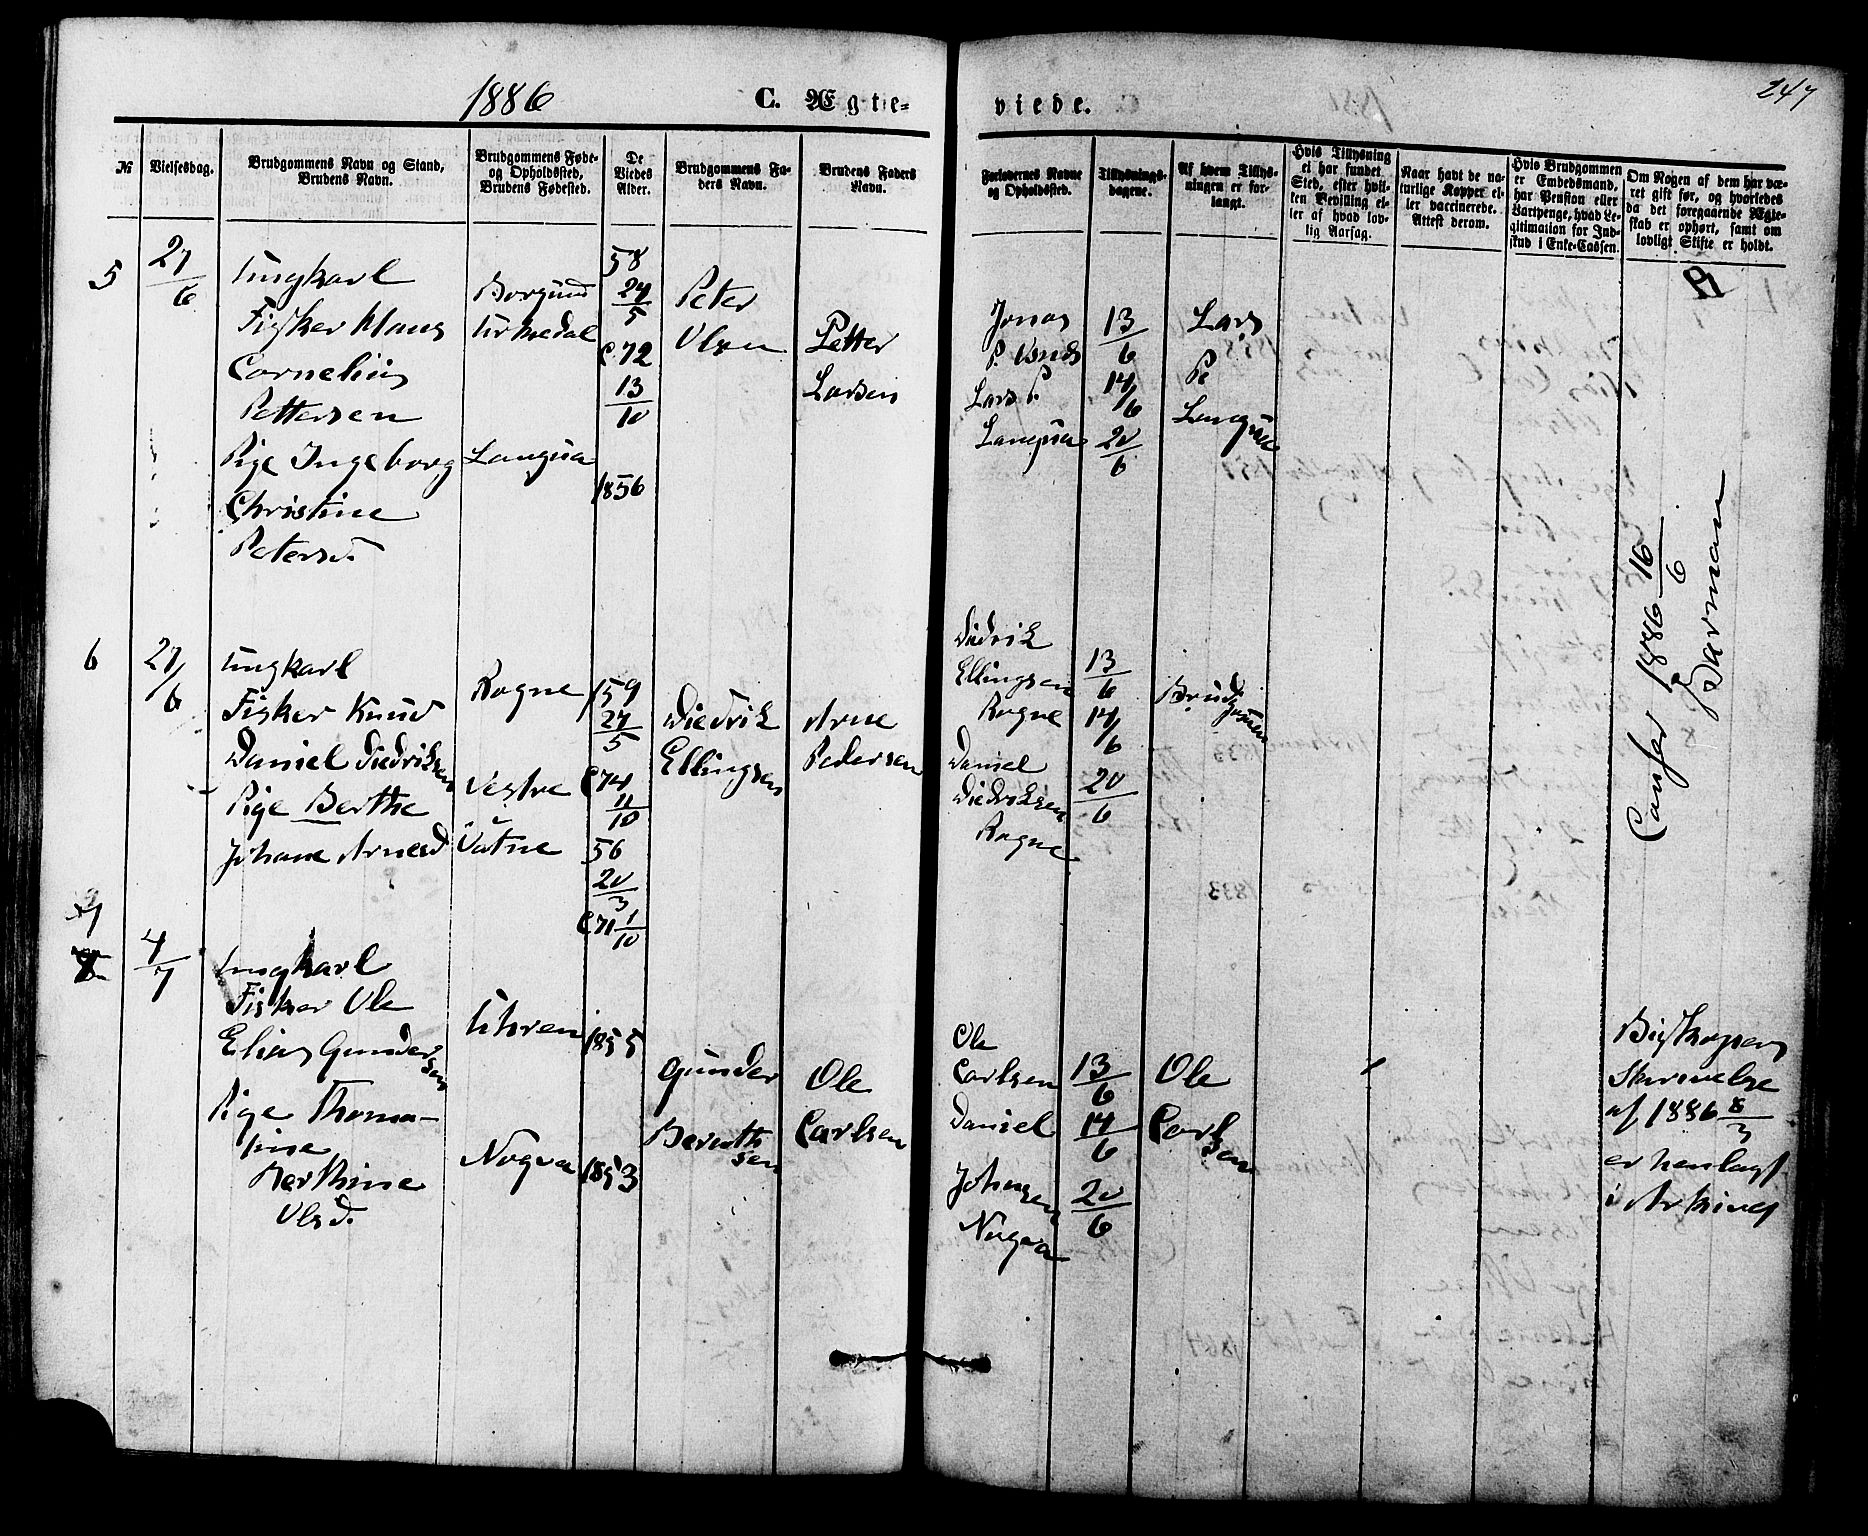 1886
C. Ægte-
viede.
247
№
Vielsesdag.
Brudgommens Navn og Stand,
Brudens Navn.
Brudgommens Føde-
og Opholdssted,
Brudens Fødested.
De
Viedes
Alder.
Brudgommens Fa-
ders Navn.
Brudens Faders
Navn.
Forlovernes Navne
og Opholdssted.
Tillysnings-
dagene.
Af hvem Tillys-
ningen er for-
langt.
Hvis Tillysning
ei har fundet
Sted, efter hvil-
ken Bevilling el-
ler af hvad lov-
lig Aarsag.
Naar havt de na-
turlige Kopper el-
ler vaccinerede.
Attest derom.
Hvis Brudgommen
er Embedsmand,
har Pension eller
Vartpenge, hvad Le-
gitimation for Ind-
skud i Enke-Cassen.
Om Nogen af dem har væ-
ret gift før, og hvorledes
da det foregaaende Ægte-
skab er ophørt, samt om
lovligt Skifte er holdt.
5
27/6
Ungkarl
Fisker Klaus
Cornelius
Pettersen
Pige Ingeborg
Christine
Petersd.
Borgund
Urkedal
Langva
58
24/5
C 72
13/10
1856
Peter
Olsen
Petter
Larsen
Jonas
P.
Lars P.
Langva
13/6
14/6
20/6
Lars
P.
Langva
6
27/6
Ungkarl
Fisker Knud
Daniel Diedriksen
Pige Berthe
Johane Arnesd
Rogne
Vestre
Vatne
159
27/5
C 74
11/10
56
20/3
C 71 1/10
Diedrik
Ellingsen
Arne
Pedersen
Diedrik
Ellingsen
Rogne
Daniel
Diedriksen
Rogne
13/6
14/6
20/6
Brudgommen
Confer 1886 16/6
7
4/7
Ungkarl
Fisker Ole
Elias Gundersen
Pige Thoma-
sine
Berthine
Olsd.
Uksen
Nogva
1855
1853
Gunder
Berentsen
Ole
Carlsen
Ole
Carlsen
Daniel
Johnsen
Nogva
13/6
14/6
20/6
Ole
Carlsen
Biskopens
Skrivelse
af 1886 8/3
er henlagt
i Arkivet